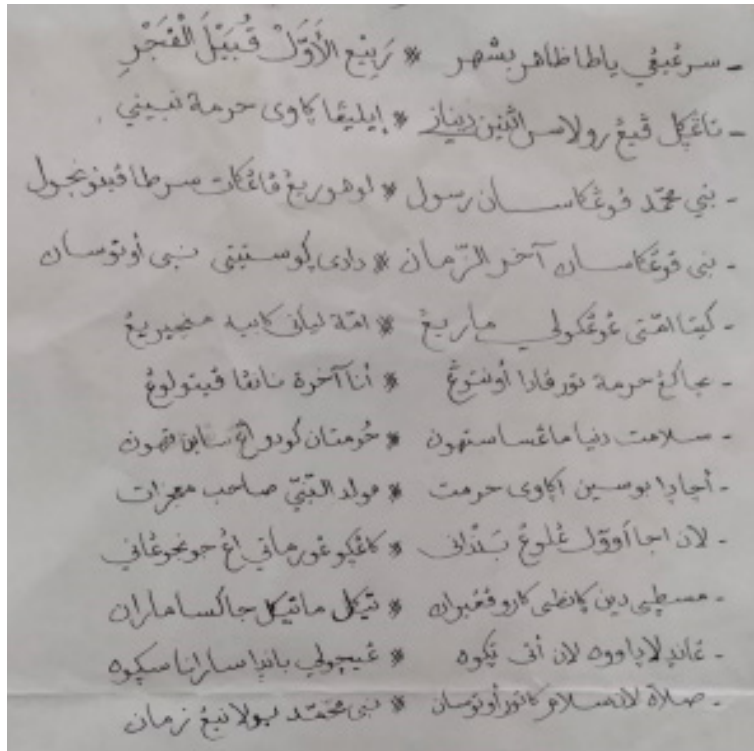 - سرڠيڠي ياطا ظاهر بشهر * رَبِيْع الْأَوَّلْ قُبَيْلَ الْفَجْرِ
- تاڠڮل ڤيڠ رولاس اثنين ديناني * إيليڠا ڮاوى حرمة نبيني
- نبي محمّد فوڠكاسان رسول * اوهوريڠ ڤاڠكات سرطا ڤينونجول
- نبى فوڠكاسان آخر الزّمان * دادى ڮوستيني نبى أوتوسان
- كيتا امّتى عوڠكولي ماريڠ * امّة ليان كابيه منجيريڠ
- بجاكڠ حرمة تور ڤادا أونتوڠ * أنا آخرة نانڤا ڤيتولوڠ
- سلامت دنيا ماڠسا ستهون * حُرمتان كودو اڠ سابن تهون
- أجا ڤادا بوسين اڮاوى حرمت * مولد النّبيّ صاحب معجزات
- لان اجا أووَل عُلوڠ بَنْدانى * كاڠڮو عورماتي اڠ جونجوڠاني
- مسطيى دين ڮانطى كارو ففيران * تيكل ماتيكل جاكسا ماران
- عاندلا ڤاووه لان أتى ڠكوه * عيجولي باندا سارانا سكوه
- صلاة لان سلام كاتور أوتوسان * نبى محمّد بولانيڠ زمان